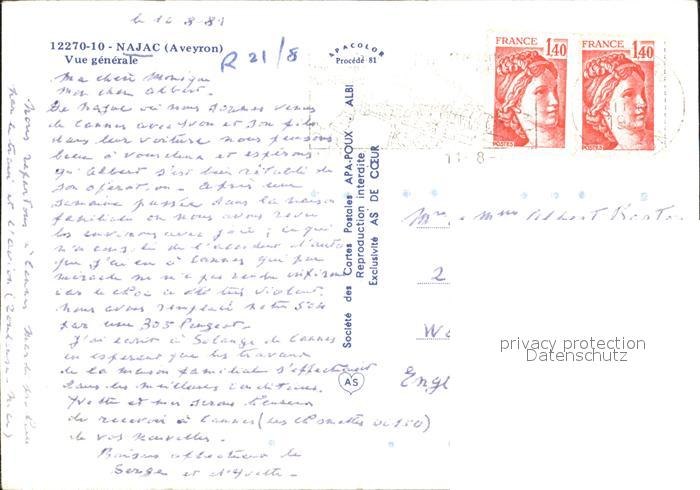 le 16-8-81
12270-10 - NAJAC (Aveyron)
Vue générale
R 21/8
APACOLOR
Procédé 81
FRANCE
1,40
POSTES
FRANCE
1,40
POSTES
11-8-
Ma chère Monique
Mon cher Albert.
De Najac où nous sommes venus
de Cannes avec Yvon et son fils
dans leur voiture nous pensons
bien à vous deux et espérons
qu'Albert s'est bien rétabli de
son opération - Après une
semaine passée dans la maison
familiale où nous avons revu
les environs avec joie, ce qui
m'a consolé de l'accident d'auto
que j'ai eu à Cannes qui par
miracle ne m'a pas rendu
car le choc a été très violent.
Nous avons remplacé notre 504
par une 305 Peugeot.
J'ai écrit à Solange de Cannes
en espérant que les travaux
de la maison familiale s'effectuent
dans les meilleures conditions.
Yvette et moi serons heureux
de recevoir à Cannes (les
de vos nouvelles.
Baisers affectueux de
Serge et d'Yvette -
Nous repartons à Cannes Mardi
le train et l'avion (Toulouse - Nice)
Société des Cartes Postales APA-POUX ALBI
Reproduction interdite
Exclusivité AS DE CŒUR
AS
Mr & Mme Albert
2
W
Engl
privacy protection
Datenschutz